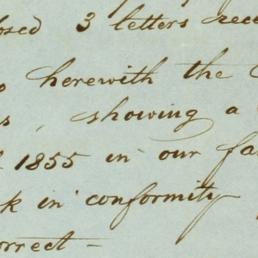 osed 3 letters rece
herewith the
s, showing a
1855 in our fa
k in conformity
orrect -